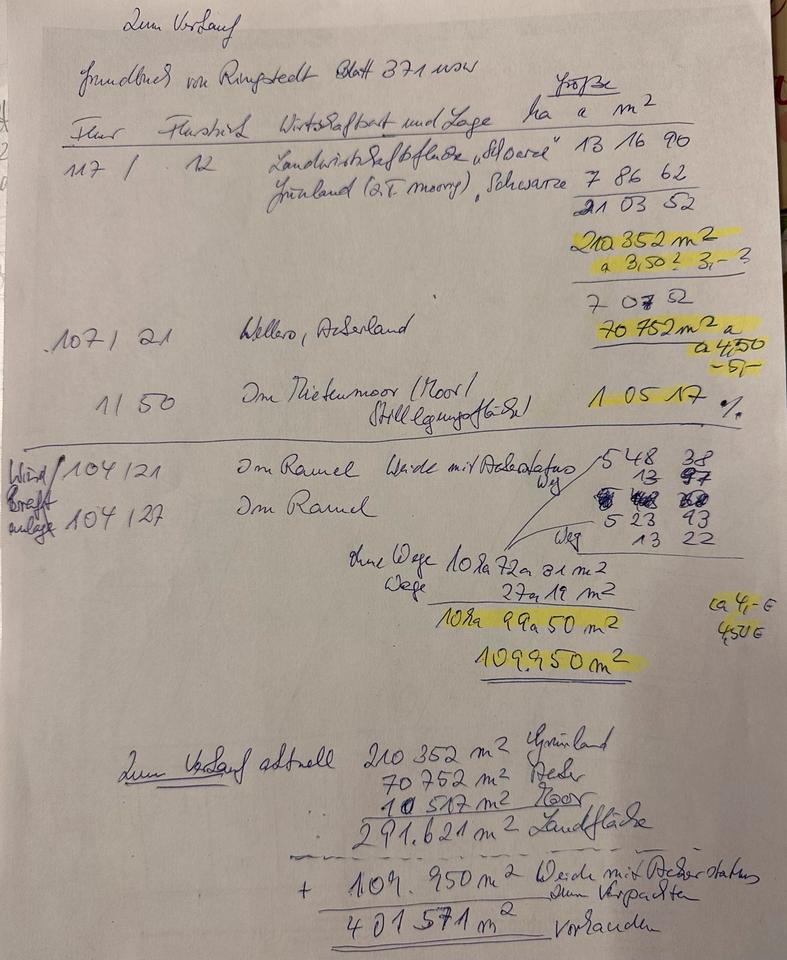 Zum Verkauf
Grundbuch von Ringstedt Blatt 371 usw
Größe
Flur Flurstück Wirtschaftsart und Lage ha a m²
117 / 12 Landwirtschaftsfläche 13 16 90
Grünland (z.T. moorig), Schwarze 7 86 62
21 03 52
210 352 m²
a 3,50? 3,- ?
7 07 52
107 / 21 Ackerland 70 752 m² a
a 4,50
- 5,-
1 / 50 Im Mietenmoor (Moor / 1 05 17 %
Stillegungsfläche)
Wind/ 104 / 21 Im Ramel Weide mit Ackerstatus 5 48 38
kraft Weg 13 97
anlage 104 / 27 Im Ramel 5 23 93
Weg 13 22
ohne Wege 10ha 72a 31 m²
Wege 27a 19 m²
10ha 99a 50 m²
ca 4,- €
4,50 €
109.950 m²
Zum Verkauf aktuell 210 352 m² Grünland
70 752 m² Acker
10 517 m² Moor
291.621 m² Landfläche
+ 109.950 m² Weide mit Ackerstatus
zum Verpachten
401 571 m² vorhanden